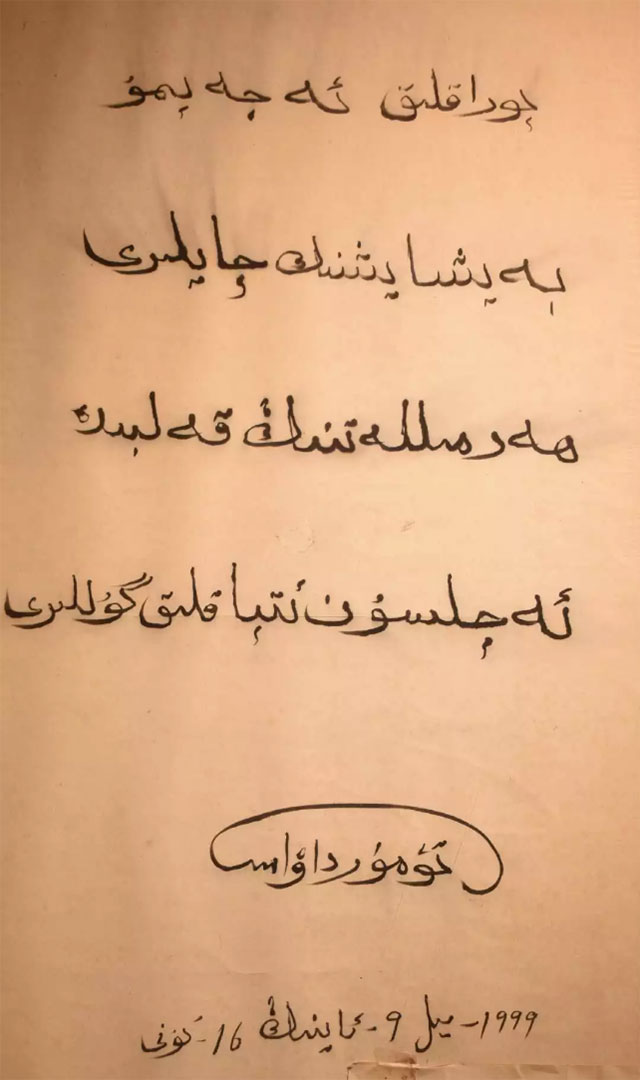 پوراقلىق ئەجەپمۇ
بەيشايشنىڭ چايلىرى
ھەر مىللەتنىڭ قەلبىدە
ئەچىلسۇن ئتپاقلىق گۈللىرى
تۆمۈر داۋاس
1999-يىل 9-ئاينىڭ 16-كۈنى